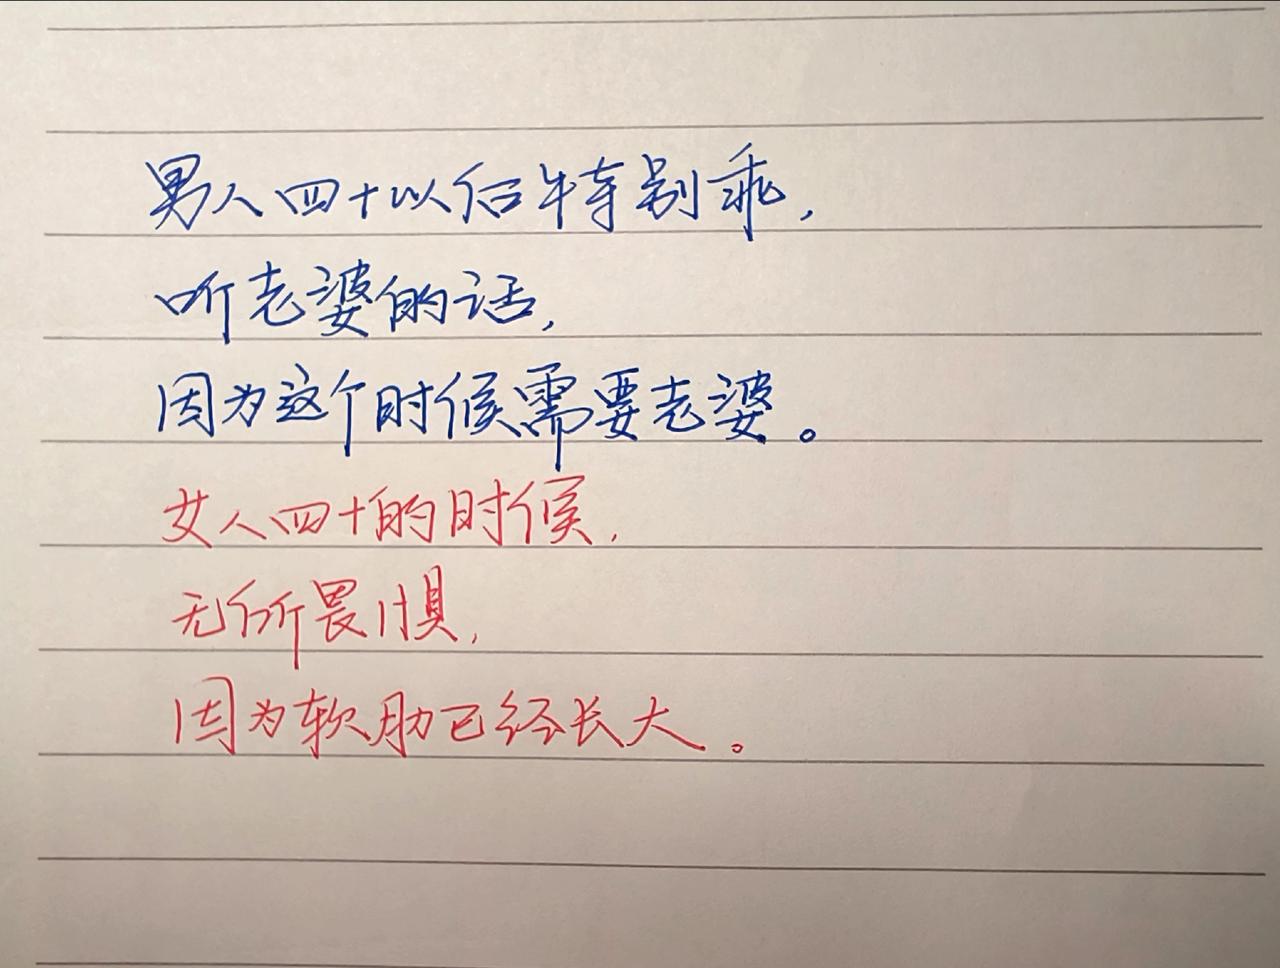 男人四十以后特别乖，
听老婆的话，
因为这个时候需要老婆。
女人四十的时候，
无所畏惧，
因为软肋已经长大。